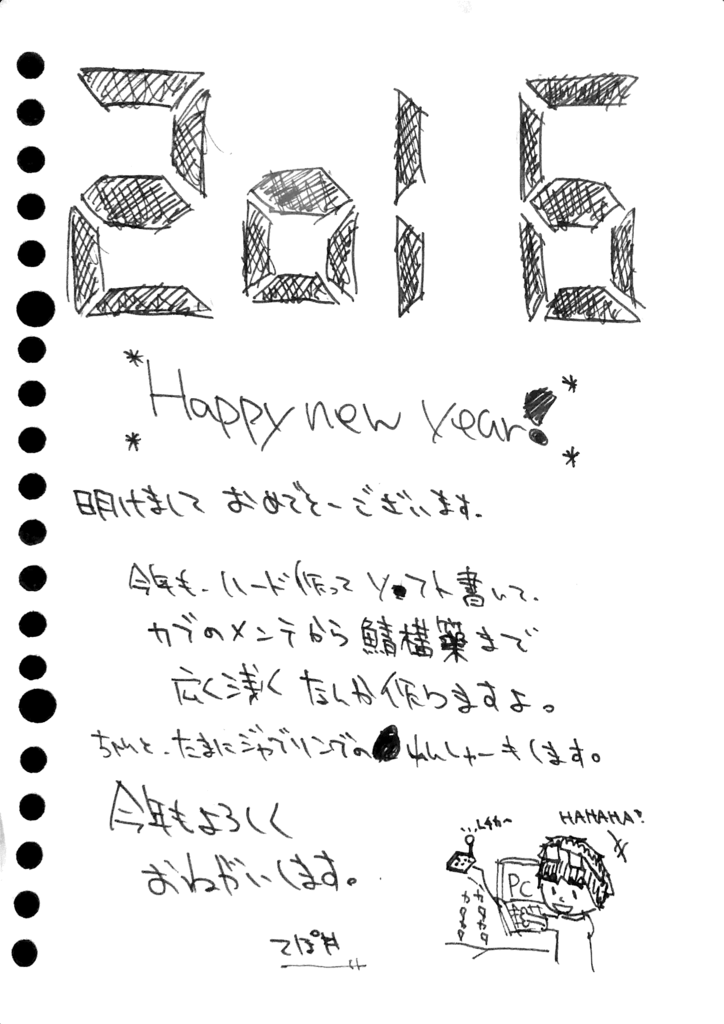 2016
Happy new year!
明けまして おめでとーございます.
今年も、ハード作って ソフト書いて、
カブのメンテから鯖構築まで
広く浅く なんか作りますよ。
ちゃんと、たまにジャグリングの れんしゅーもします。
今年もよろしく
おねがいします。
HAHAHA!
Lチカ〜
PC
カタカタ
カタカタ